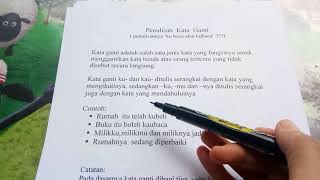 Penulisan Kata Ganti
( penulisannya "ku baca atau kubaca" ???)
Kata ganti adalah salah satu jenis kata yang fungsinya untuk
menggantikan kata benda atau orang tertentu yang tidak
disebut secara langsung.
Kata ganti ku- dan kau- ditulis serangkai dengan kata yang
mengikutinya, sedangkan –ku, -mu dan –nya ditulis serangkai
juga dengan kata yang mendahuluinya
Contoh:
• Rumah itu telah kubeli
• Buku itu boleh kaubaca
• Milikku,milikmu dan miliknya
• Rumahnya sedang diperbaiki
Catatan:
Pada dasarnya kata ganti dibagi tiga, yaitu